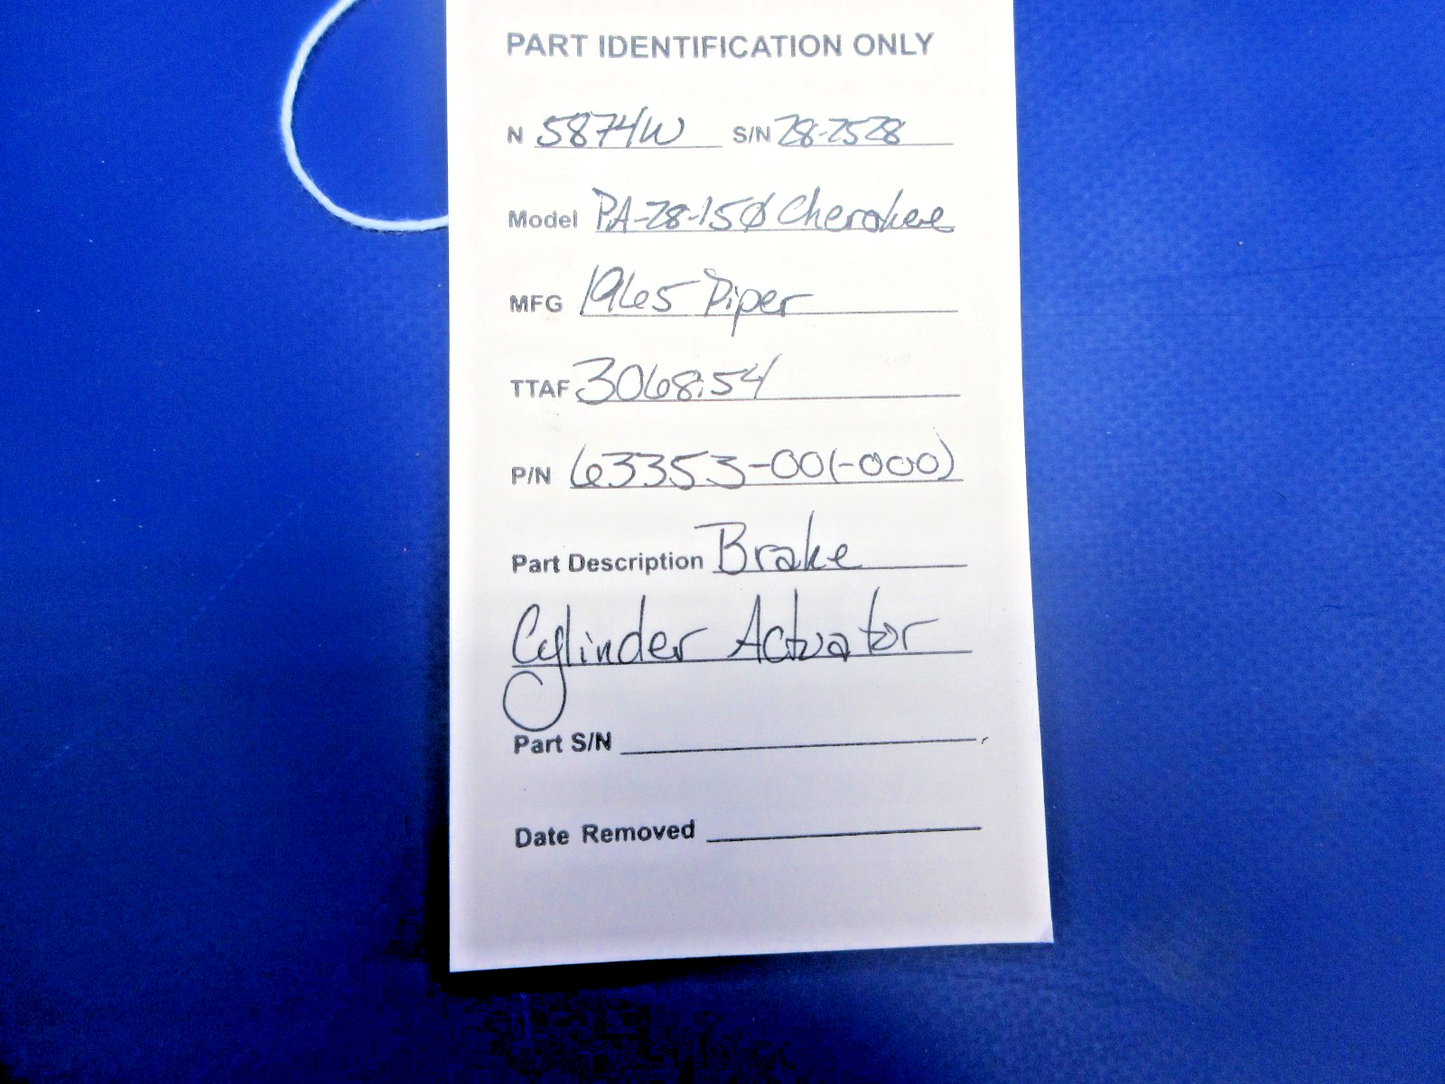 PART IDENTIFICATION ONLY
N 5874W S/N 28-2528
Model PA-28-150 Cherokee
MFG 1965 Piper
TTAF 3068.54
P/N 63353-00(-000)
Part Description Brake
Cylinder Actuator
Part S/N
Date Removed